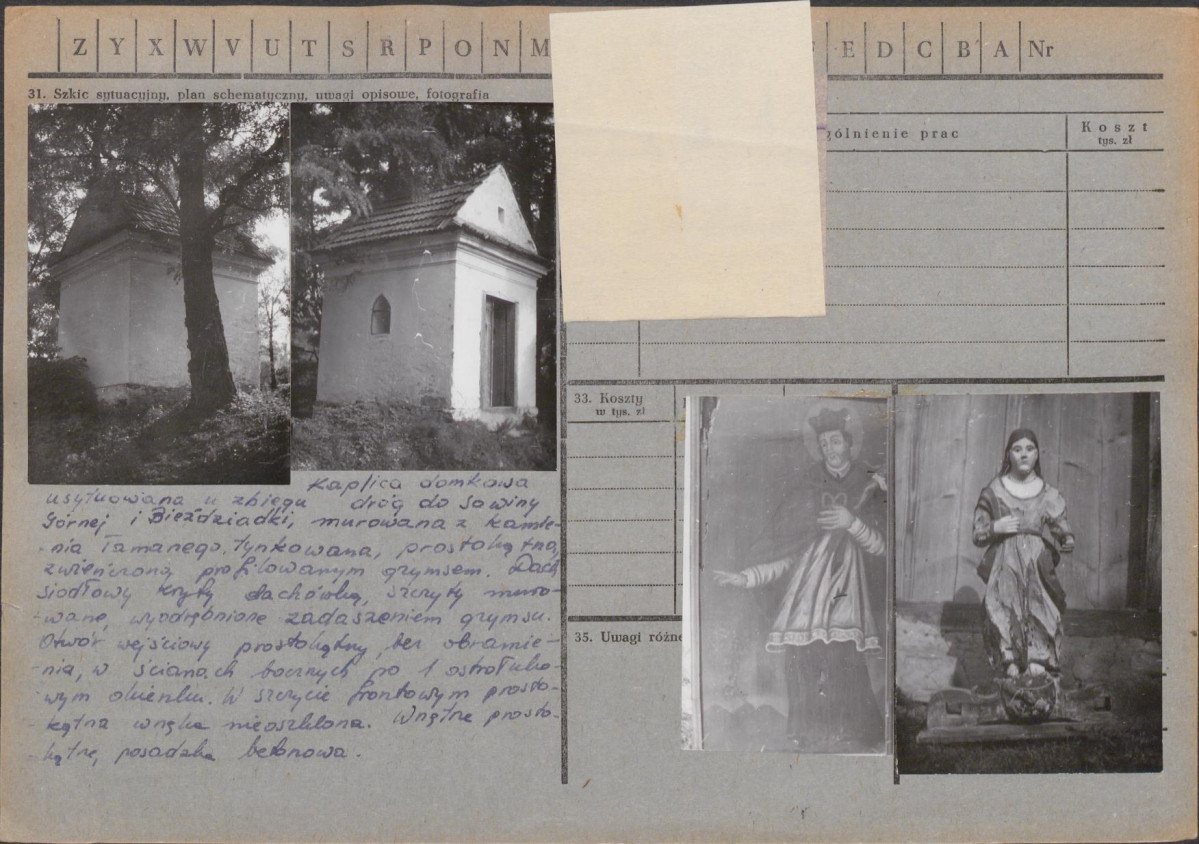 Z Y X W V U T S R P O N M E D C B A Nr
31. Szkic sytuacyjny, plan schematyczny, uwagi opisowe, fotografia
gólnienie prac
Koszt
tys. zł
33. Koszty
w tys. zł
35. Uwagi różne
Kaplica domkowa
usytuowana u zbiegu dróg do Sowiny
Górnej i Bieździadki, murowana z kamie-
-nia łamanego, tynkowana, prostokątna,
zwieńczona profilowanym gzymsem. Dach
siodłowy kryty dachówką, szczyty muro-
-wane, wyodrębnione zadaszeniem gzymsu.
Otwór wejściowy prostokątny bez obramie-
-nia, w ścianach bocznych po 1 ostrołuko-
-wym okienku. W szczycie frontowym prosto-
-kątna wnęka nieoszklona. Wnętrze prosto-
-kątne, posadzka betonowa.